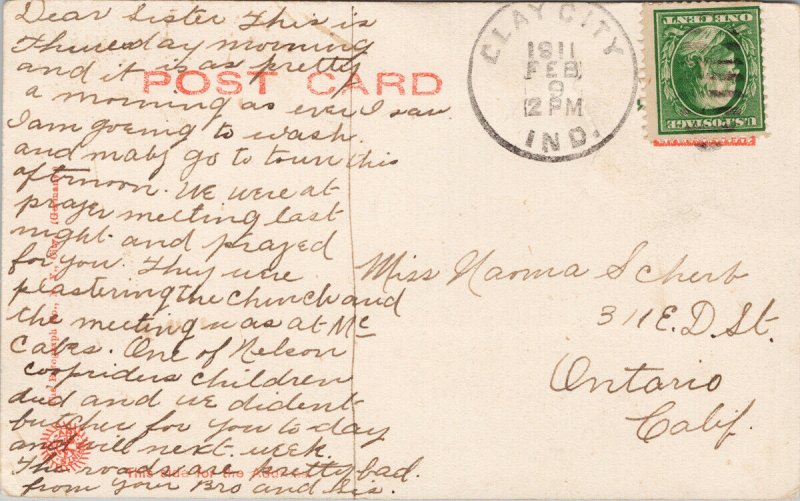 Dear Sister This is
Thuresday morning
and it is as pretty
a morning as ever I saw
I am going to wash
and maby go to town this
afternoon. We were at
prayer meeting last
night and prayed
for you. They were
plastering the church and
the meeting was at Mc
Cabes. One of Nelson
coopriders children
died and we dident
butcher for you to day
and will next week.
The roads are pretty bad.
from your Bro and Sis.
POST CARD
CLAY CITY
1911
FEB
9
2 PM
IND.
ONE CENT
U.S. POSTAGE
Miss Naoma Scherb
311 E. D. St.
Ontario
Calif.
(Germany)
This side for the Address